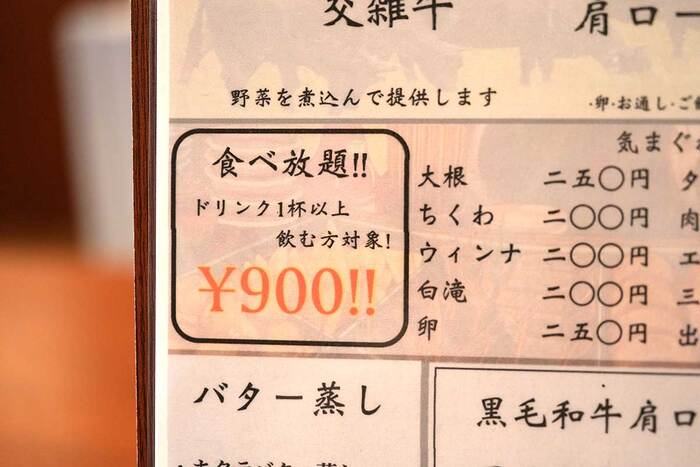 交雑牛
肩ロー
野菜を煮込んで提供します
・卵・お通し・ご
食べ放題!!
ドリンク1杯以上
飲む方対象!
¥900!!
気まぐ
大根 二五〇円
ちくわ 二〇〇円 肉
ウィンナ 二〇〇円 エ
白滝 二〇〇円 三
卵 二五〇円 出
バター蒸し
黒毛和牛肩ロ